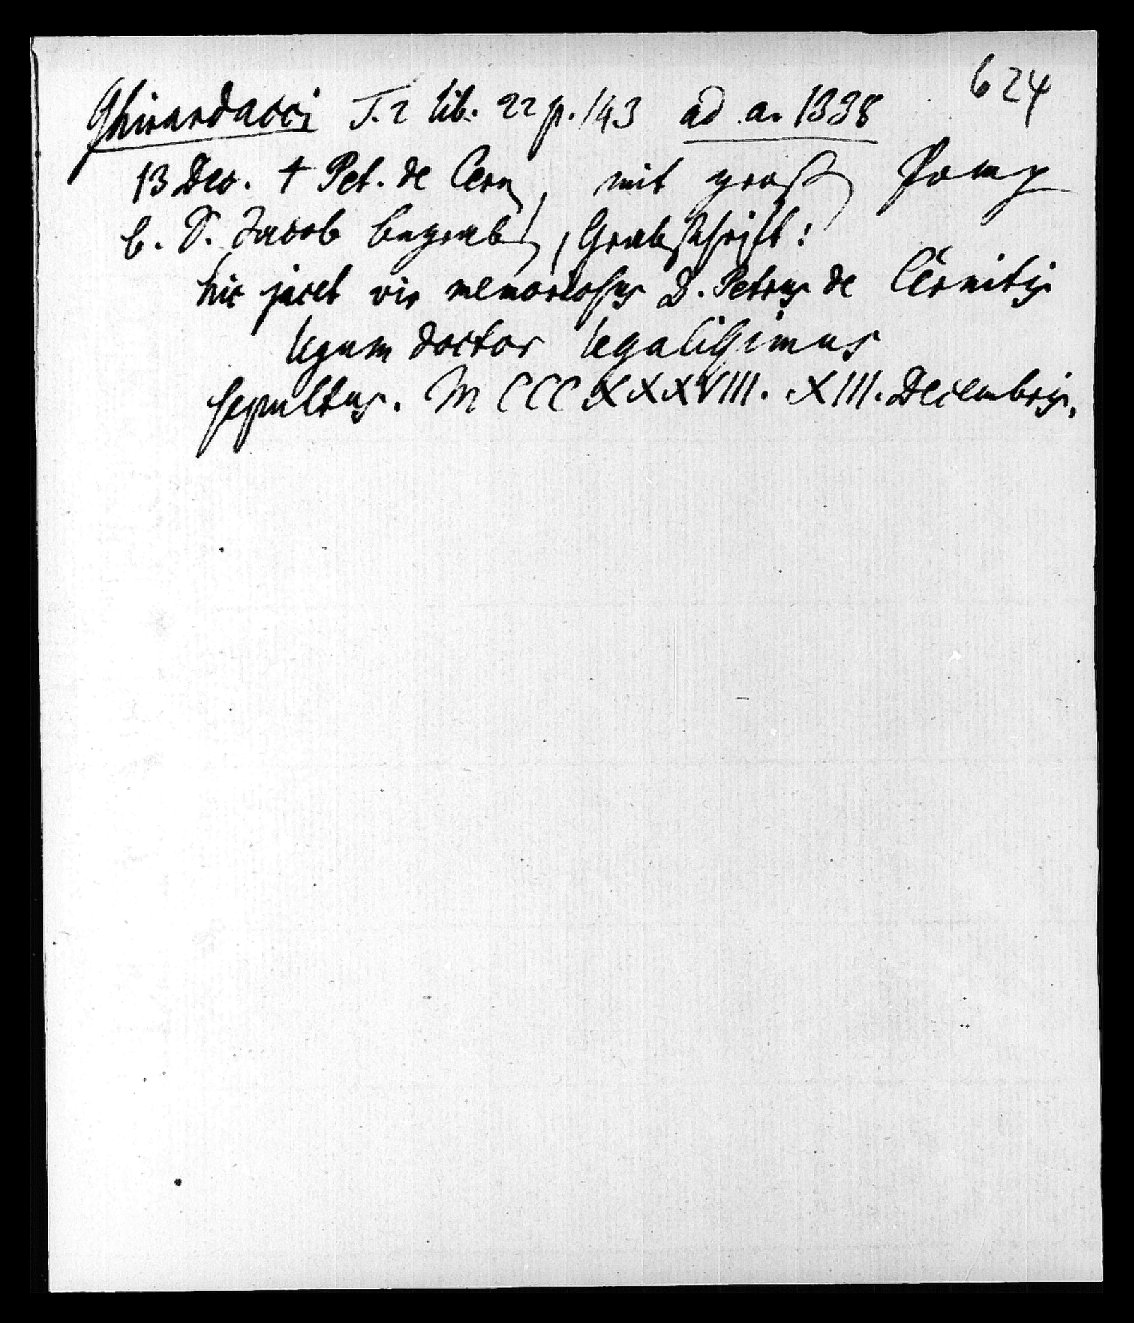 624
Ghirardacci T. 2 lib. 22 p. 143 ad a. 1338
13 Dec. † Pet. de Cern, mit groß Pomp
b. S. Jacob begrab, Grabschrift:
hic jacet vir memoriosus D. Petrus de Cernitis
legum doctor legalissimus
sepultus. MCCCXXXVIII. XIII. Decembris.